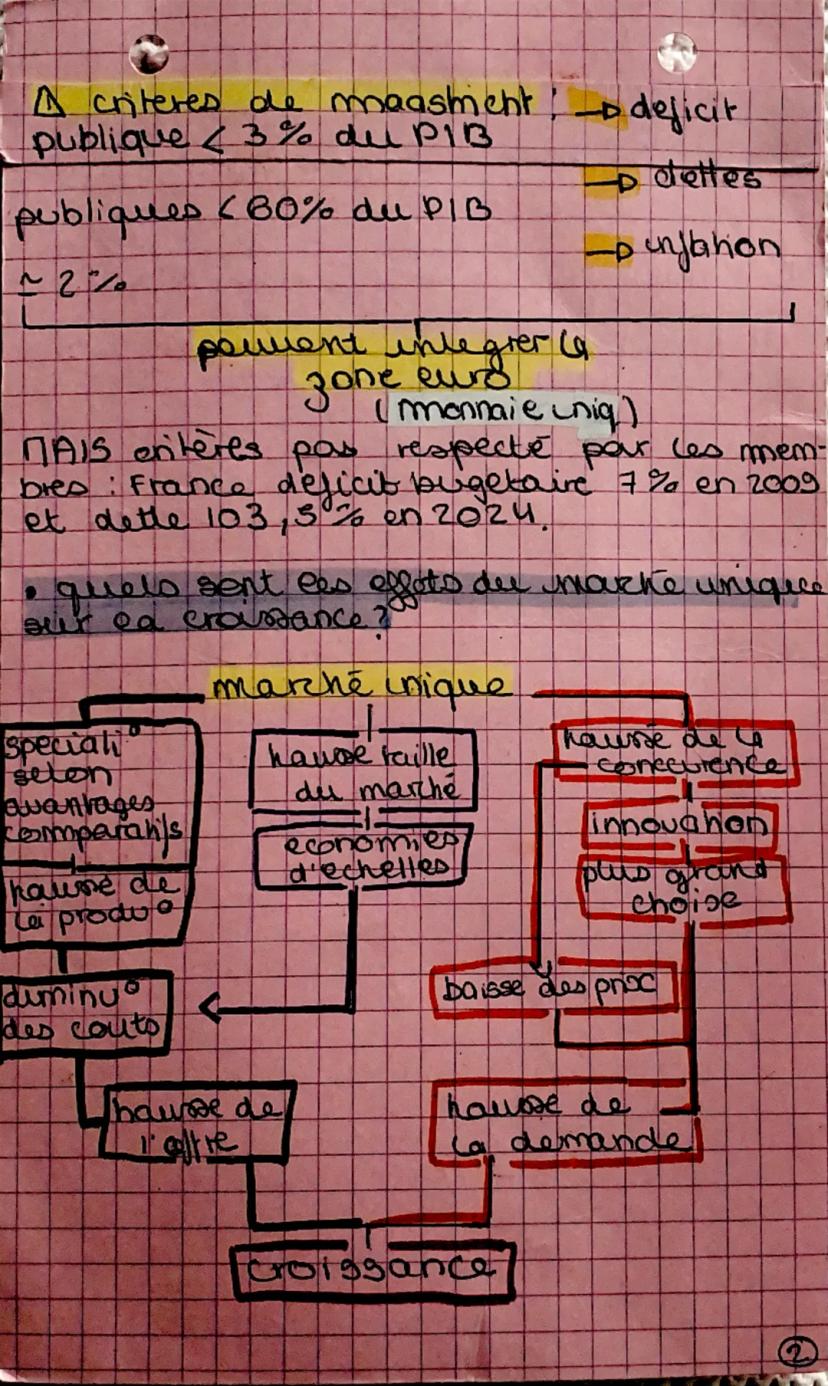 Δ criteres de maastricht : → deficit
publique < 3% du PIB
→ dettes
publiques < 60% du PIB
→ inflation
≃ 2%
peuvent integrer la
zone euro
(monnaie uniq)
MAIS critères pas respecté par les mem-
bres : France deficit bugetaire 7% en 2009
et dette 103,5% en 2024.
• quels sont les effets du marché unique
sur la croissance?
marché unique
speciali°
selon
avantages
comparatifs
hausse taille
du marché
hausse de la
concurence
innovation
economies
d'echelles
plus grand
choise
hausse de
la produ°
baisse des prix
diminu°
des couts
hausse de
l'offre
hausse de
la demande
croissance
2